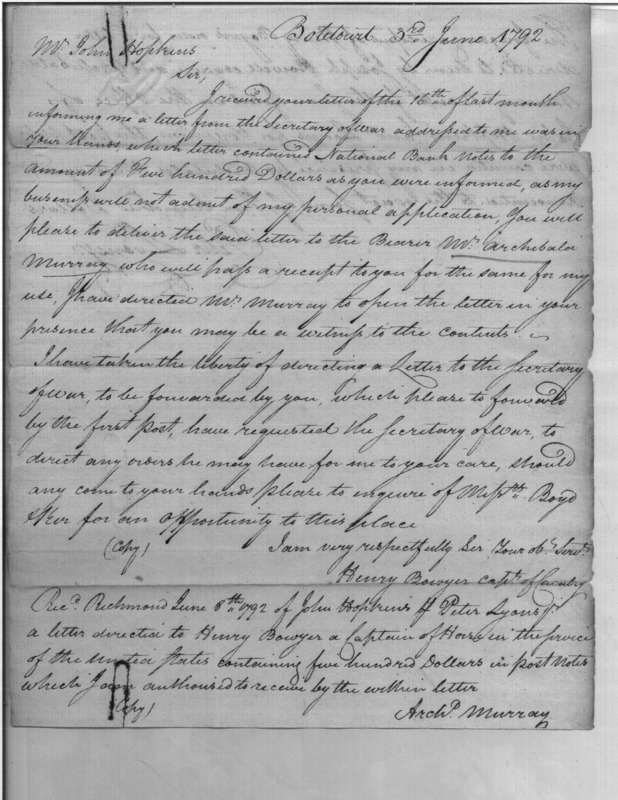 Botetourt 3rd June 1792
Mr. John Hopkins
Sir,
I received your letter of the 16th of last month
informing me a letter from the Secretary of War addressed to me was in
your hands, which letter contained National Bank Notes to the
amount of Five hundred Dollars as you were informed, as my
business will not admit of my personal application, You will
please to deliver the said letter to the Bearer Mr. Archibald
Murray who will pass a receipt to you for the same for my
use, I have directed Mr. Murray to open the letter in your
presence that you may be a witness to the contents.
I have taken the liberty of directing a Letter to the Secretary
of War, to be forwarded by you, which please to forward
by the first post, have requested the Secretary of War, to
direct any orders he may have for me to your care, should
any come to your hands please to enquire of Boyd
Ker for an opportunity to this place
(Copy) I am very respectfully Sir Your obt. Servt.
Henry Bowyer captn. of Cavalry
Recd. Richmond June 8th 1792 of John Hopkins Peter Lyons Jr.
a letter directed to Henry Bowyer a Captain of Horse in the service
of the United States containing five hundred Dollars in post Notes
which I am authorised to receive by the within letter
(Copy)
Archd. Murray